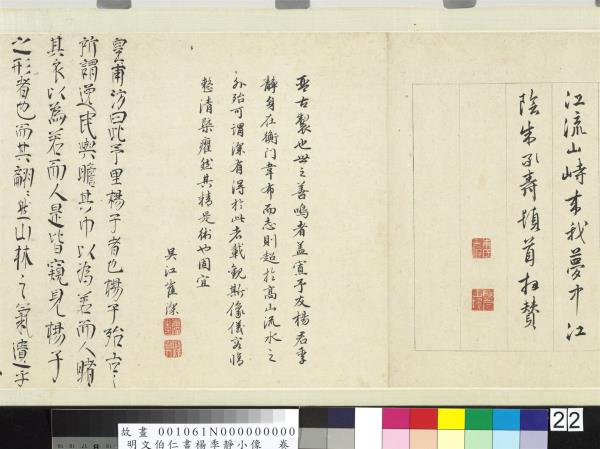 江流山峙來我夢中江
陰朱承壽頓首拜贊
琴古製也世之善鳴者蓋寡予友楊君季
靜身在衡門韋布而志則超於高山流水之
外殆可謂深有得於此者載觀斯像儀容脩
整清癯然其精是術也固宜
吳江崔深
皇甫汸曰此予里楊子者也楊子殆古之
所謂逸民輿瞻其巾以為若而人睹
其衣以為若而人是皆窺見楊子
之形者也而其翩翩然山林之氣遺乎
22
故畫001061N000000000
明文伯仁畫楊季靜小像 卷